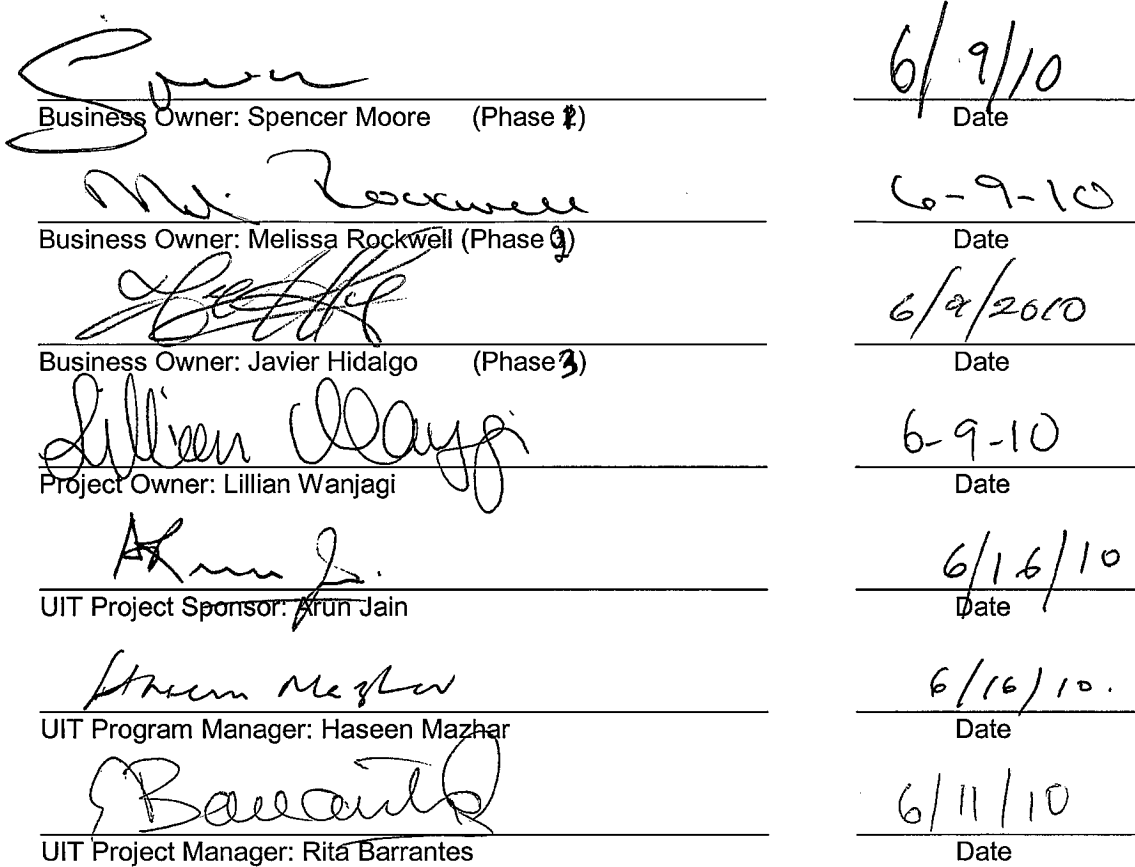 Spencer 6/9/10
Business Owner: Spencer Moore (Phase 1) Date
Rockwell 6-9-10
Business Owner: Melissa Rockwell (Phase 2) Date
6/9/2010
Business Owner: Javier Hidalgo (Phase 3) Date
Lillian Wanjagi 6-9-10
Project Owner: Lillian Wanjagi Date
Arun J. 6/16/10
UIT Project Sponsor: Arun Jain Date
Haseen Mazhar 6/16/10.
UIT Program Manager: Haseen Mazhar Date
Barrantes 6/11/10
UIT Project Manager: Rita Barrantes Date